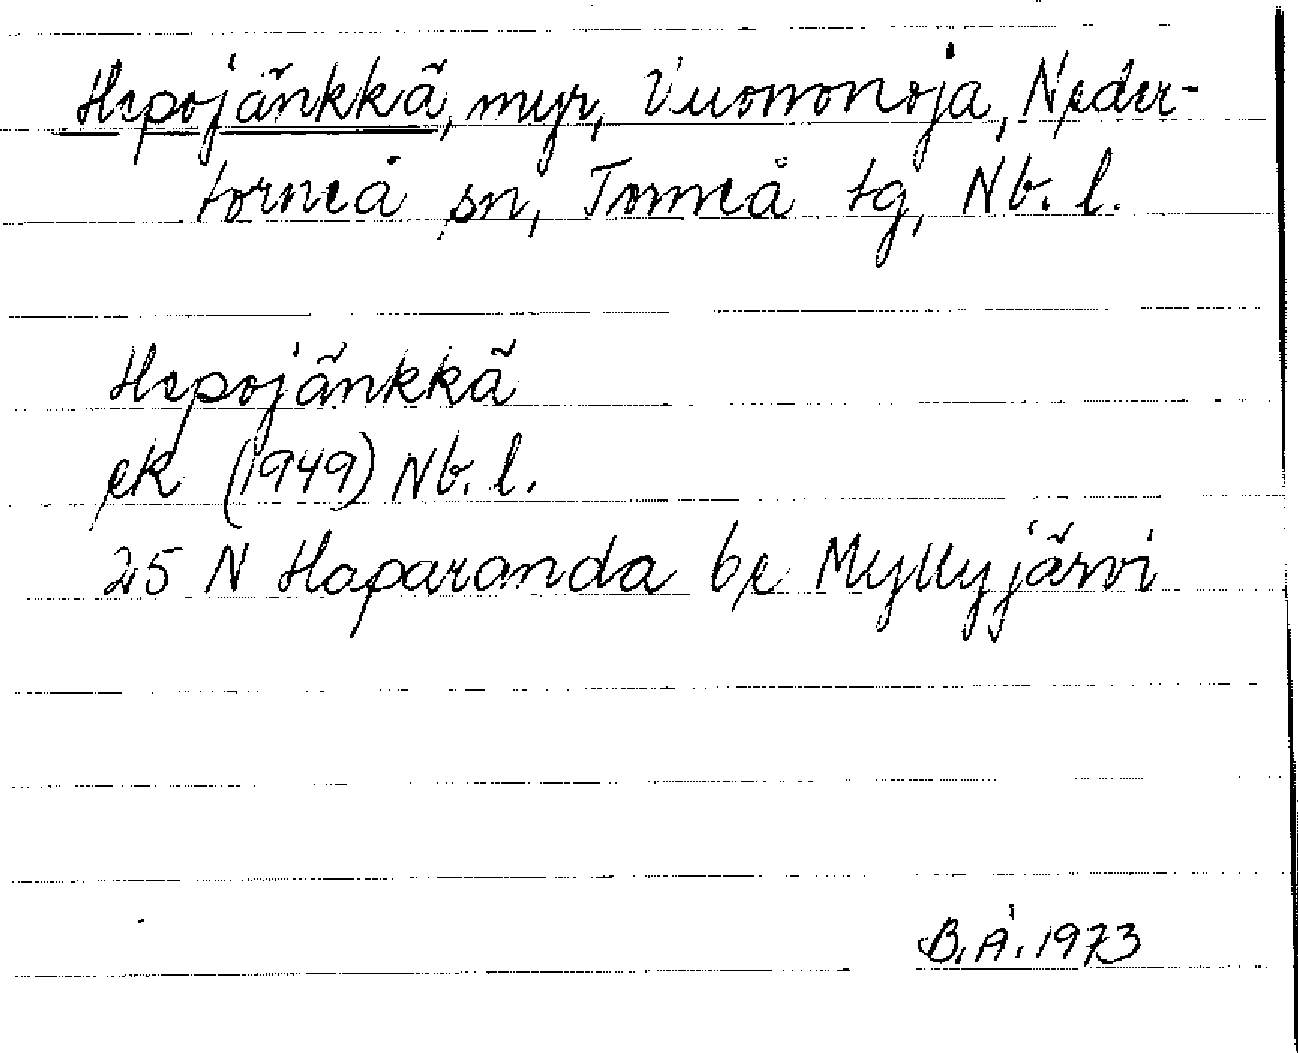 Hepojänkkä, myr, Vuomonoja, Neder-
torneå sn, Torneå tg, Nb. l.
Hepojänkkä
ek (1949) Nb. l.
25 N Haparanda be Myllyjärvi
B.Å. 1973